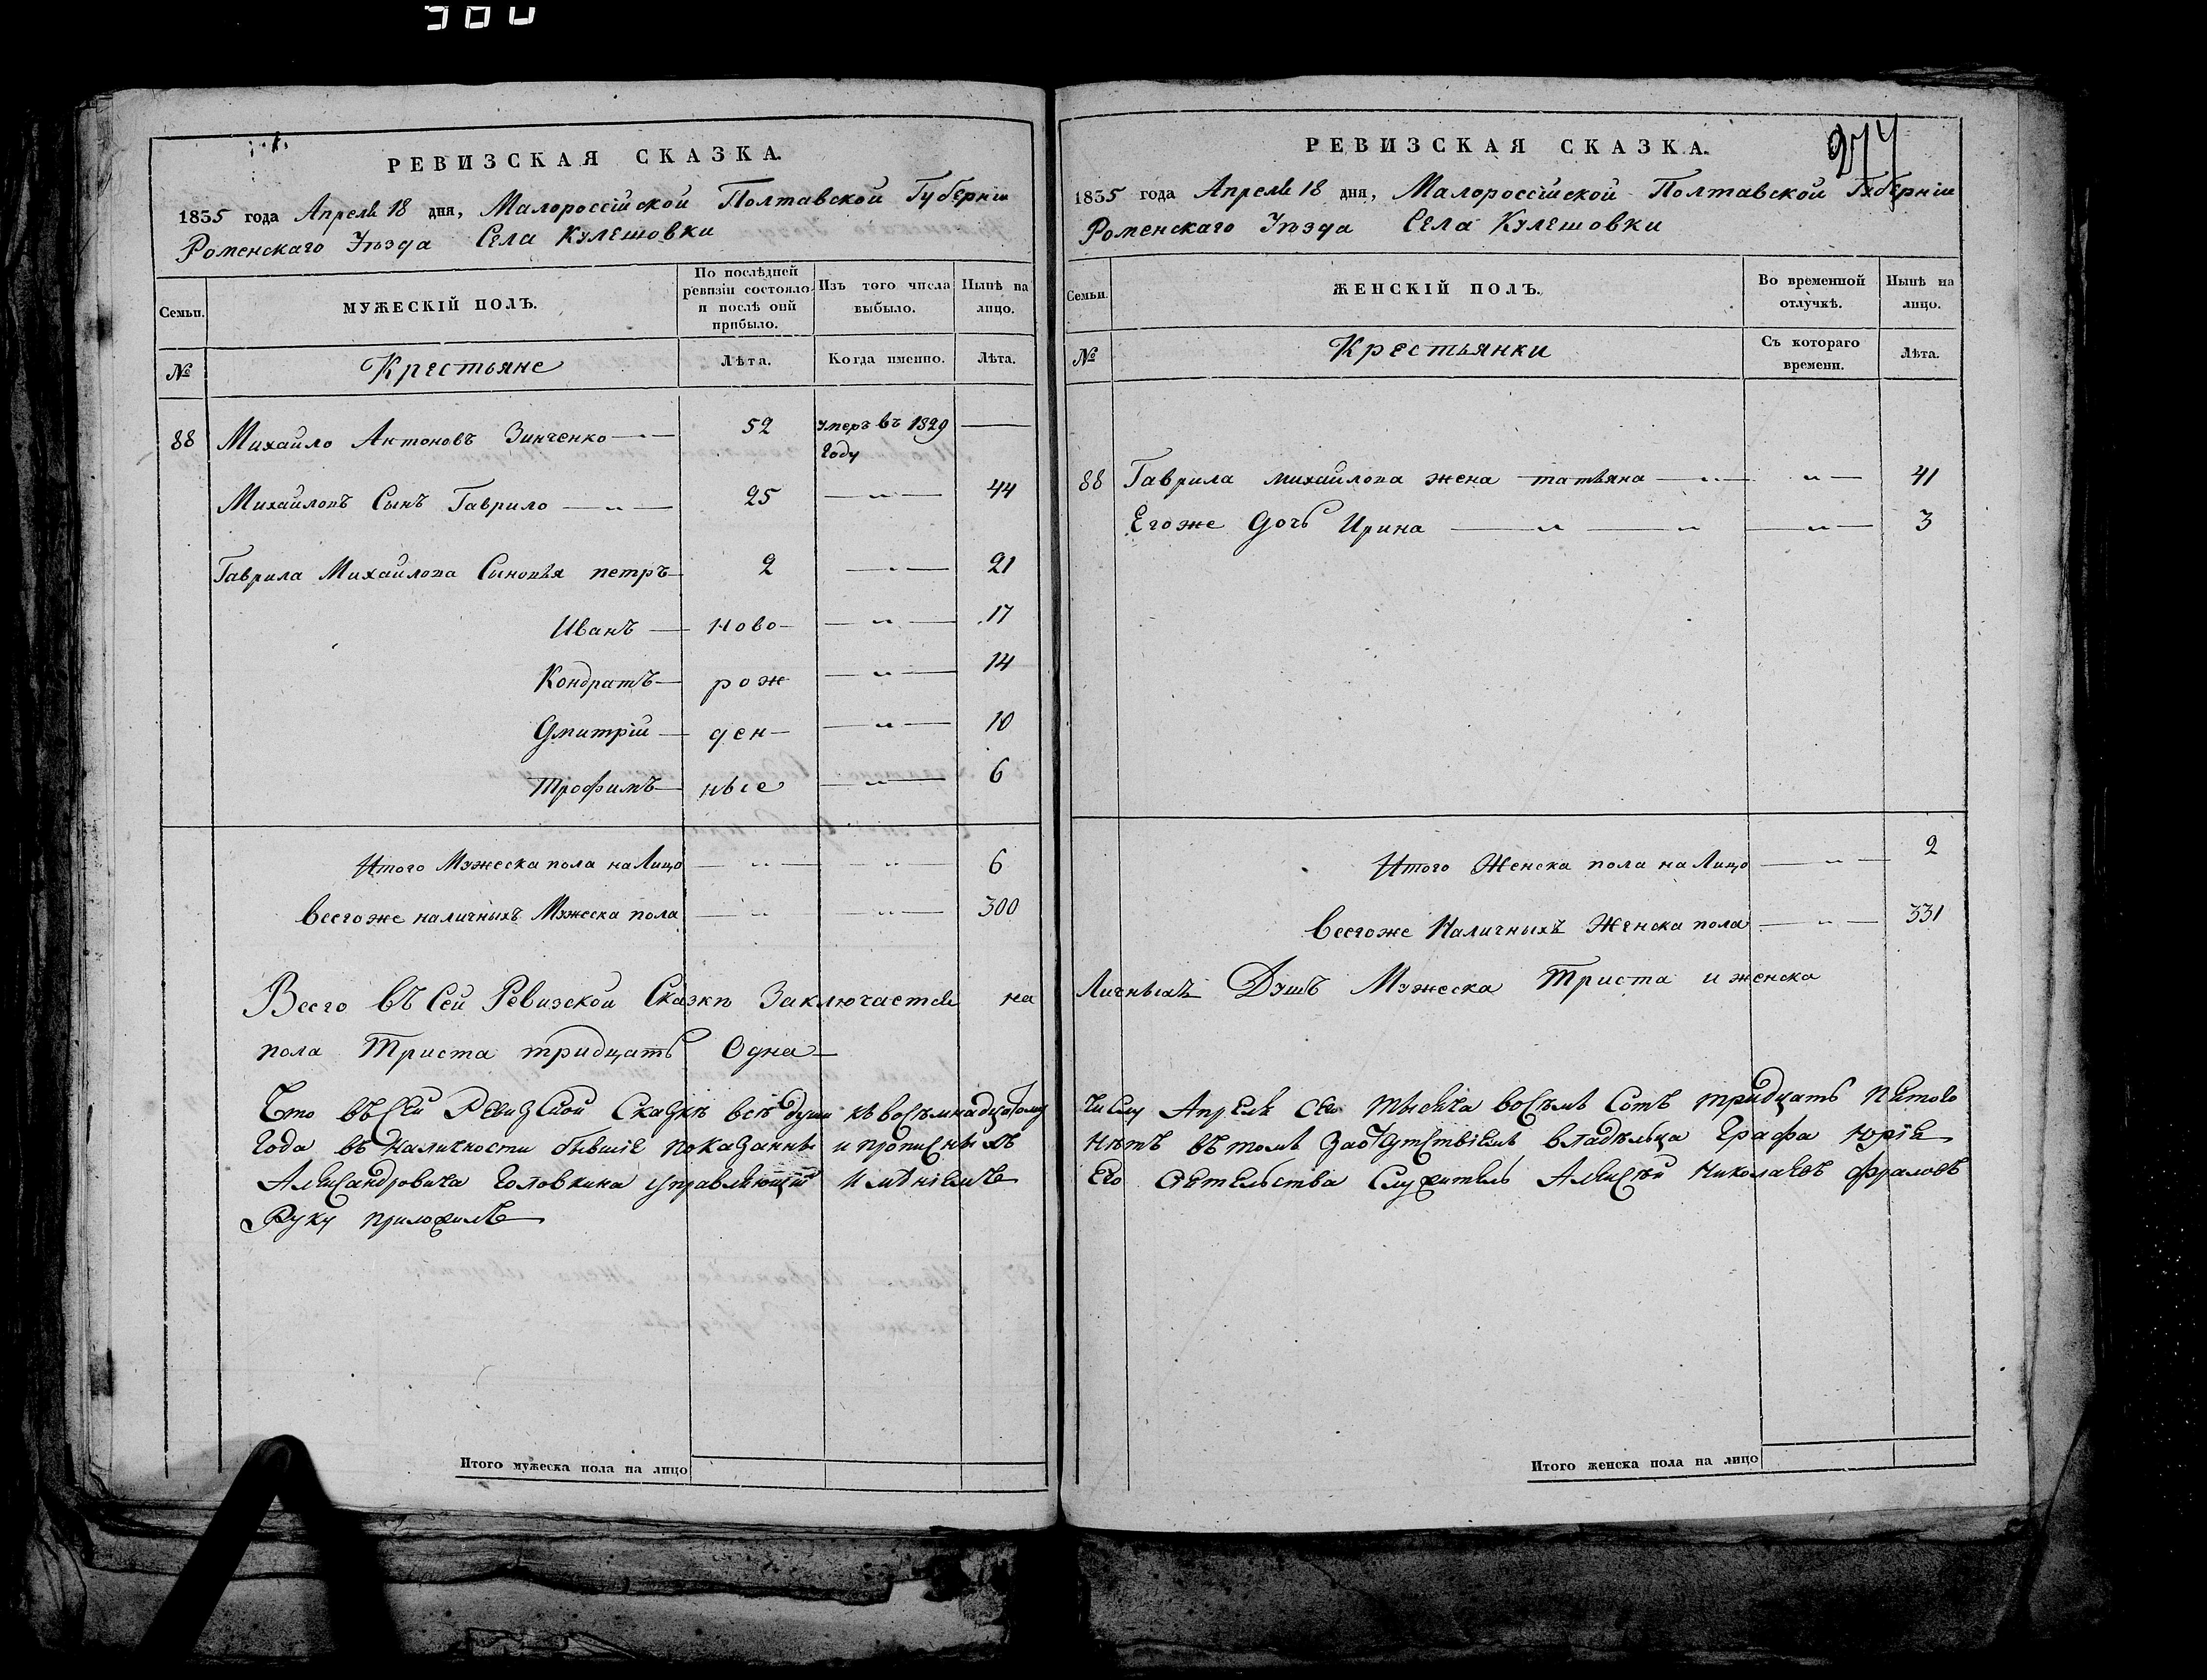 РЕВИЗСКАЯ СКАЗКА.
1835 года Апреля 18 дня, Малороссійской Полтавской Губерніи
Роменскаго Уѣзда Села Кулешовки
Семьи.
МУЖЕСКІЙ ПОЛЪ.
По послѣдней ревизіи состояло и послѣ оной прибыло.
Изъ того числа выбыло.
Нынѣ на лицо.
№
Крестьяне
Лѣта.
Когда именно.
Лѣта.
88 Михайло Антоновъ Зинченко 52 умеръ въ 1829 —
Году
Михайловъ Сынъ Гаврило — „ — 25 — „ — 44
Гаврила Михайлова Сыновья петръ 2 — „ — 21
Иванъ — ново — „ — 17
Кондратъ — рож — „ — 14
Дмитрій — ден — „ — 10
Трофимъ — ные — „ — 6
Итого Мужеска пола на Лицо — „ — „ — 6
Всегоже наличныхъ Мужеска пола — „ — „ — 300
Всего въ Сей Ревизской Сказкѣ Заключается на
пола Триста тридцать Одна
Что въ сей Ревизской Сказкѣ всѣ души къ восьмнадцатому
Года въ наличности бывшіе показанны и прописныхъ
Александровича Головкина управляющій Имѣніемъ
Руку приложилъ
Итого мужеска пола на лицо
274
РЕВИЗСКАЯ СКАЗКА.
1835 года Апреля 18 дня, Малороссійской Полтавской Губерніи
Роменскаго Уѣзда Села Кулешовки
Семьи.
ЖЕНСКІЙ ПОЛЪ.
Во временной отлучкѣ.
Нынѣ на лицо.
№
Крестьянки
Съ котораго времени.
Лѣта.
88 Гаврила михайлова жена татьяна — „ — „ — 41
Егоже Дочь Ирина — „ — „ — „ — 3
Итого Женска пола на Лицо — „ — 2
Всегоже Наличныхъ Женска пола — „ — 331
Личныхъ Душъ Мужеска Триста и женска
числу Апреля сего тысяча восъмъ Сотъ тридцать Пятого
нѣтъ въ томъ за отсутствіемъ владѣльца Графа Юрія
Его Сіятельства Служитель Алексѣй Николаевъ Фраловъ
Итого женска пола на лицо